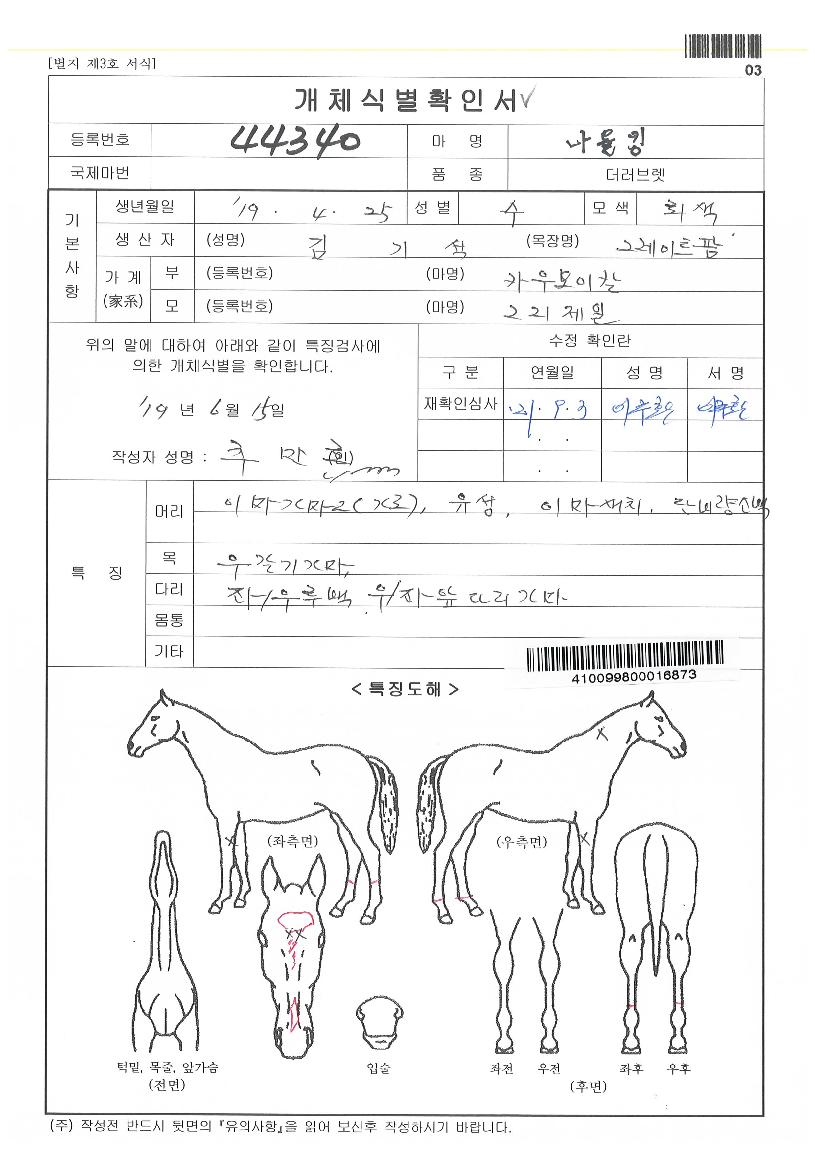 [별지 제3호 서식]
03
개체식별확인서✓
등록번호 44340 마 명 나울킹
국제마번 품 종 더러브렛
기본사항
생년월일 '19. 4. 25 성별 수 모색 회색
생 산 자 (성명) 김 기 석 (목장명) 그레이트팜
가 계 (家系) 부 (등록번호) (마명) 카우보이찰
모 (등록번호) (마명)
위의 말에 대하여 아래와 같이 특징검사에
의한 개체식별을 확인합니다.
'19 년 6 월 15 일
작성자 성명 : (인)
수정 확인란
구 분 연월일 성 명 서 명
재확인심사 '21. 9. 3
. .
. .
특 징
머리 이마가마2(가로), 유성, 이마새치,
목 우갈기가마,
다리 좌/우후백 우/좌-앞다리가마
몸통
기타
410099800016873
< 특징도해 >
(좌측면) (우측면)
턱밑, 목줄, 앞가슴 입술 좌전 우전 좌후 우후
(전면) (후면)
(주) 작성전 반드시 뒷면의 『유의사항』을 읽어 보신후 작성하시기 바랍니다.